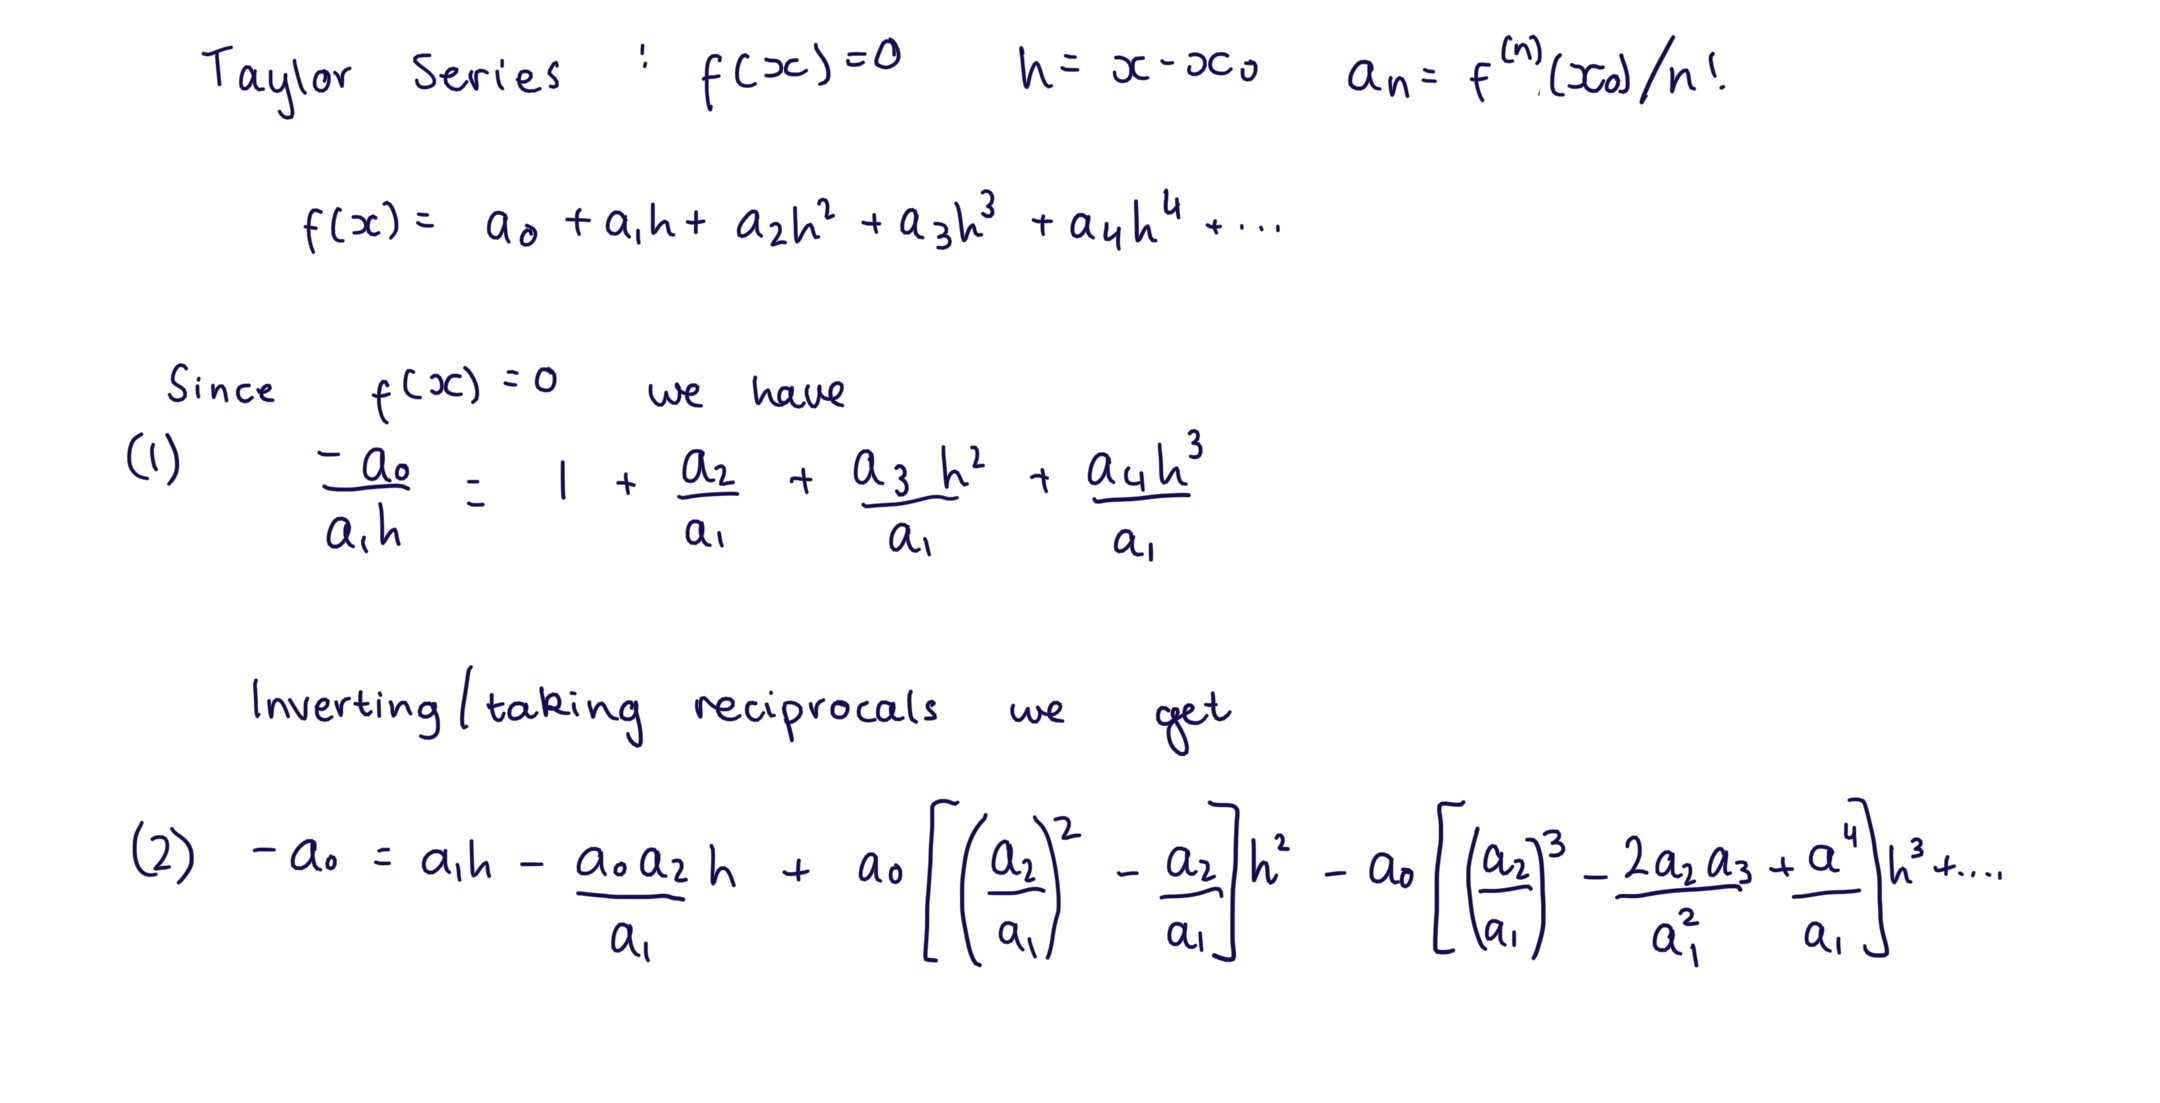 Taylor Series : f(x)=0 h= x-x₀ aₙ= f⁽ⁿ⁾(x₀)/n!
f(x)= a₀ +a₁h+ a₂h² +a₃h³ +a₄h⁴ +...
Since f(x)=0 we have
(1) -a₀/a₁h = 1 + a₂/a₁ + a₃h²/a₁ + a₄h³/a₁
Inverting/taking reciprocals we get
(2) -a₀ = a₁h - a₀a₂/a₁ h + a₀[(a₂/a₁)² - a₂/a₁]h² - a₀[(a₂/a₁)³ - 2a₂a₃/a₁² + a⁴/a₁]h³+....